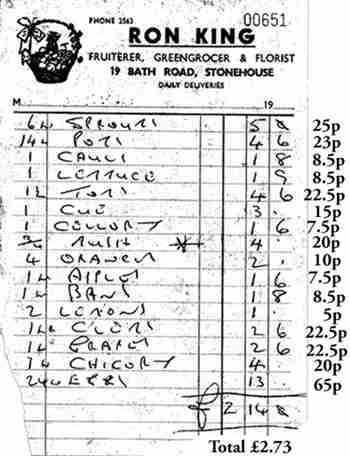 PHONE 2563 00651
RON KING
FRUITERER, GREENGROCER & FLORIST
19 BATH ROAD, STONEHOUSE
DAILY DELIVERIES
M 19
SPROUTS 5 25p
14 POTS 4 6 23p
1 CAULI 1 8 8.5p
1 LETTUCE 1 9 8.5p
TOMS 4 6 22.5p
1 CUE 3 15p
1 CELLORY 1 6 7.5p
MUSH 4 20p
4 ORANGES 2 10p
APPLES 1 6 7.5p
BANS 1 8 8.5p
2 LEMONS 1 5p
CLEMS 2 6 22.5p
GRAPES 2 6 22.5p
CHICORY 4 20p
EGGS 13 65p
£ 2 14
Total £2.73